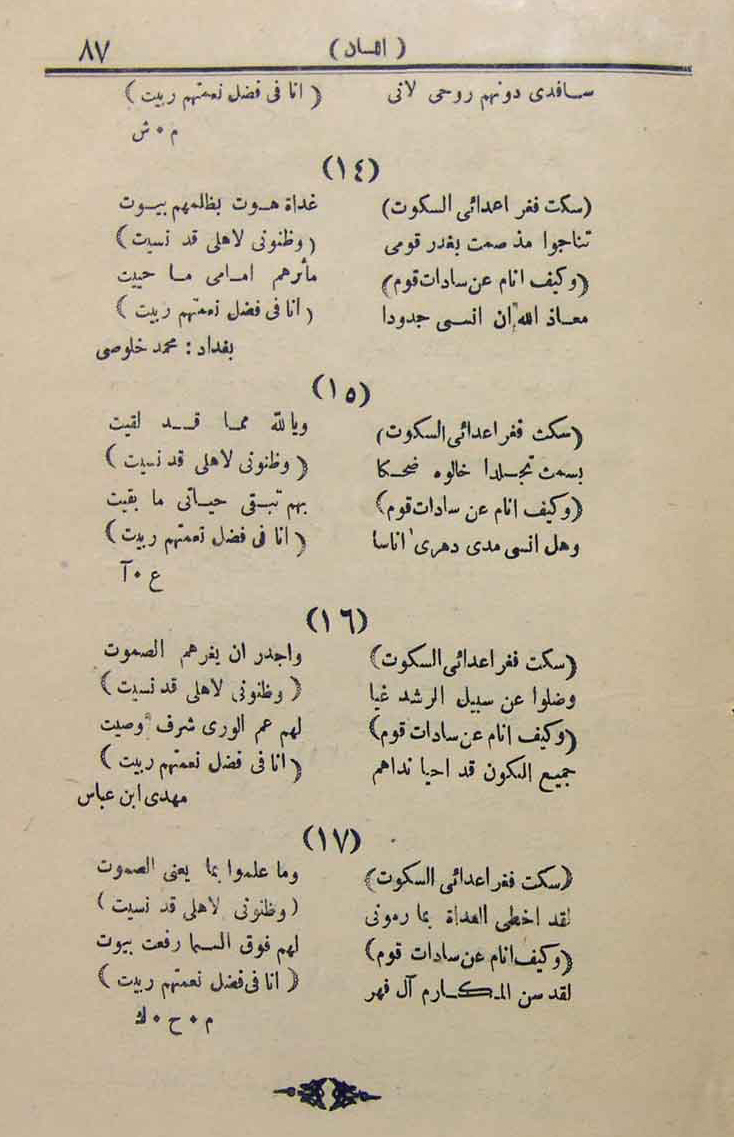 ٨٧ ( اللسان )
سـافدى دونهم روحى لانى ( انا فى فضل نعمتهم ربيت )
م ٠ ش
(١٤)
(سكت فغر اعدائى السكوت) غداة هـوت بظلمهم بيـوت
تناجوا مذ صمت بغدر قومى (وظنونى لاهلى قد نسيت)
(وكيف انام عن سادات قوم) مأثرهم امـامى مـا حييت
معـاذ الله ان انسـى جدودا (انا فى فضل نعمتهم ربيت)
بغداد : محمد خلوصى
(١٥)
(سكت فغر اعدائى السكوت) وبالله ممـا قــد لقيت
بسمت تجـلدا خالوه ضحـكا (وظنونى لاهلى قد نسيت)
(وكيف انام عن سادات قوم) بهم تبـقى حيـاتى ما بقيت
وهل انسى مدى دهرى اناسا (انا فى فضل نعمتهم ربيت)
ع ٠ آ
(١٦)
(سكت فغر اعدائى السكوت) واجدر ان يغرهم الصموت
وضلوا عن سبيل الرشد غيا (وظنونى لاهلى قد نسيت)
(وكيف انام عن سادات قوم) لهم عم الورى شرف وصيت
جميع الكون قد احيا نداهم (انا فى فضل نعمتهم ربيت)
مهدى ابن عباس
(١٧)
(سكت فغر اعدائى السكوت) وما علموا بما يعنى الصموت
لقد اخطى العداة بما رمونى (وظنونى لاهلى قد نسيت)
(وكيف انام عن سادات قوم) لهم فوق السـما رفعت بيوت
لقد سن المـكـارم آل فهر (انا فى فضل نعمتهم ربيت)
م ٠ ح ٠ ك